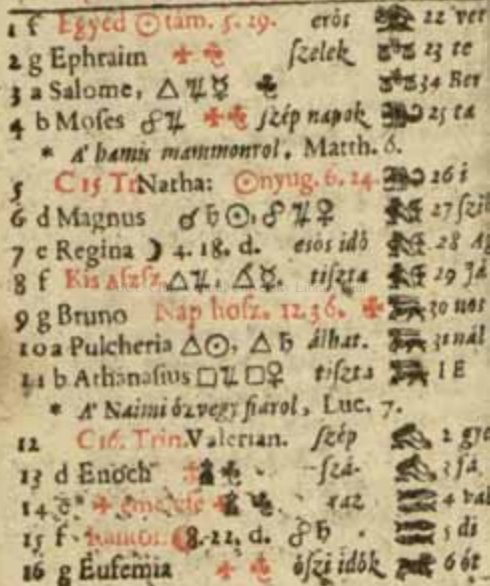 1 f Egyed ☉ tám. 5. 29. erös 22
2 g Ephraim szelek 23 te
3 a Salome, △♃☿ 34
4 b Moses ☍♃ szép napok 25 ta
* A' hamis mammonrol, Matth. 6.
5 C 15 Tr Natha: ☉nyug. 6. 24 26 i
6 d Magnus ☌♄☉, ☍♃♀ 27
7 e Regina ☽ 4. 18. d. esös idö 28
8 f Kis Aſzſz △♃, tiſzta 29
9 g Bruno Nap hoſz. 12. 36. 30
10 a Pulcheria △☉, △♄ álhat. 31 nál
11 b Athanaſius □♃ □♀ tiſzta 1 E
* A' Naimi özvegy fiarol, Luc. 7.
12 C 16. Trin. Valerian. ſzép 2
13 d Enoch ſzá- 3
14 e raz 4
15 f 8. 22. d. ☍♄ 5 di
16 g Eufemia öſzi idök 6